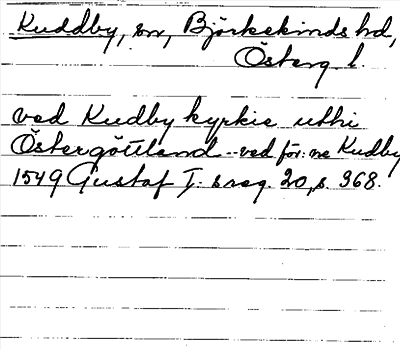 Kuddby, sn, Björkekinds hd,
Österg. l.
ved Kudby kyrkie uthi
Östergöttland -- ved för:ne Kudby
1549 Gustaf I:s reg. 20, s. 368.